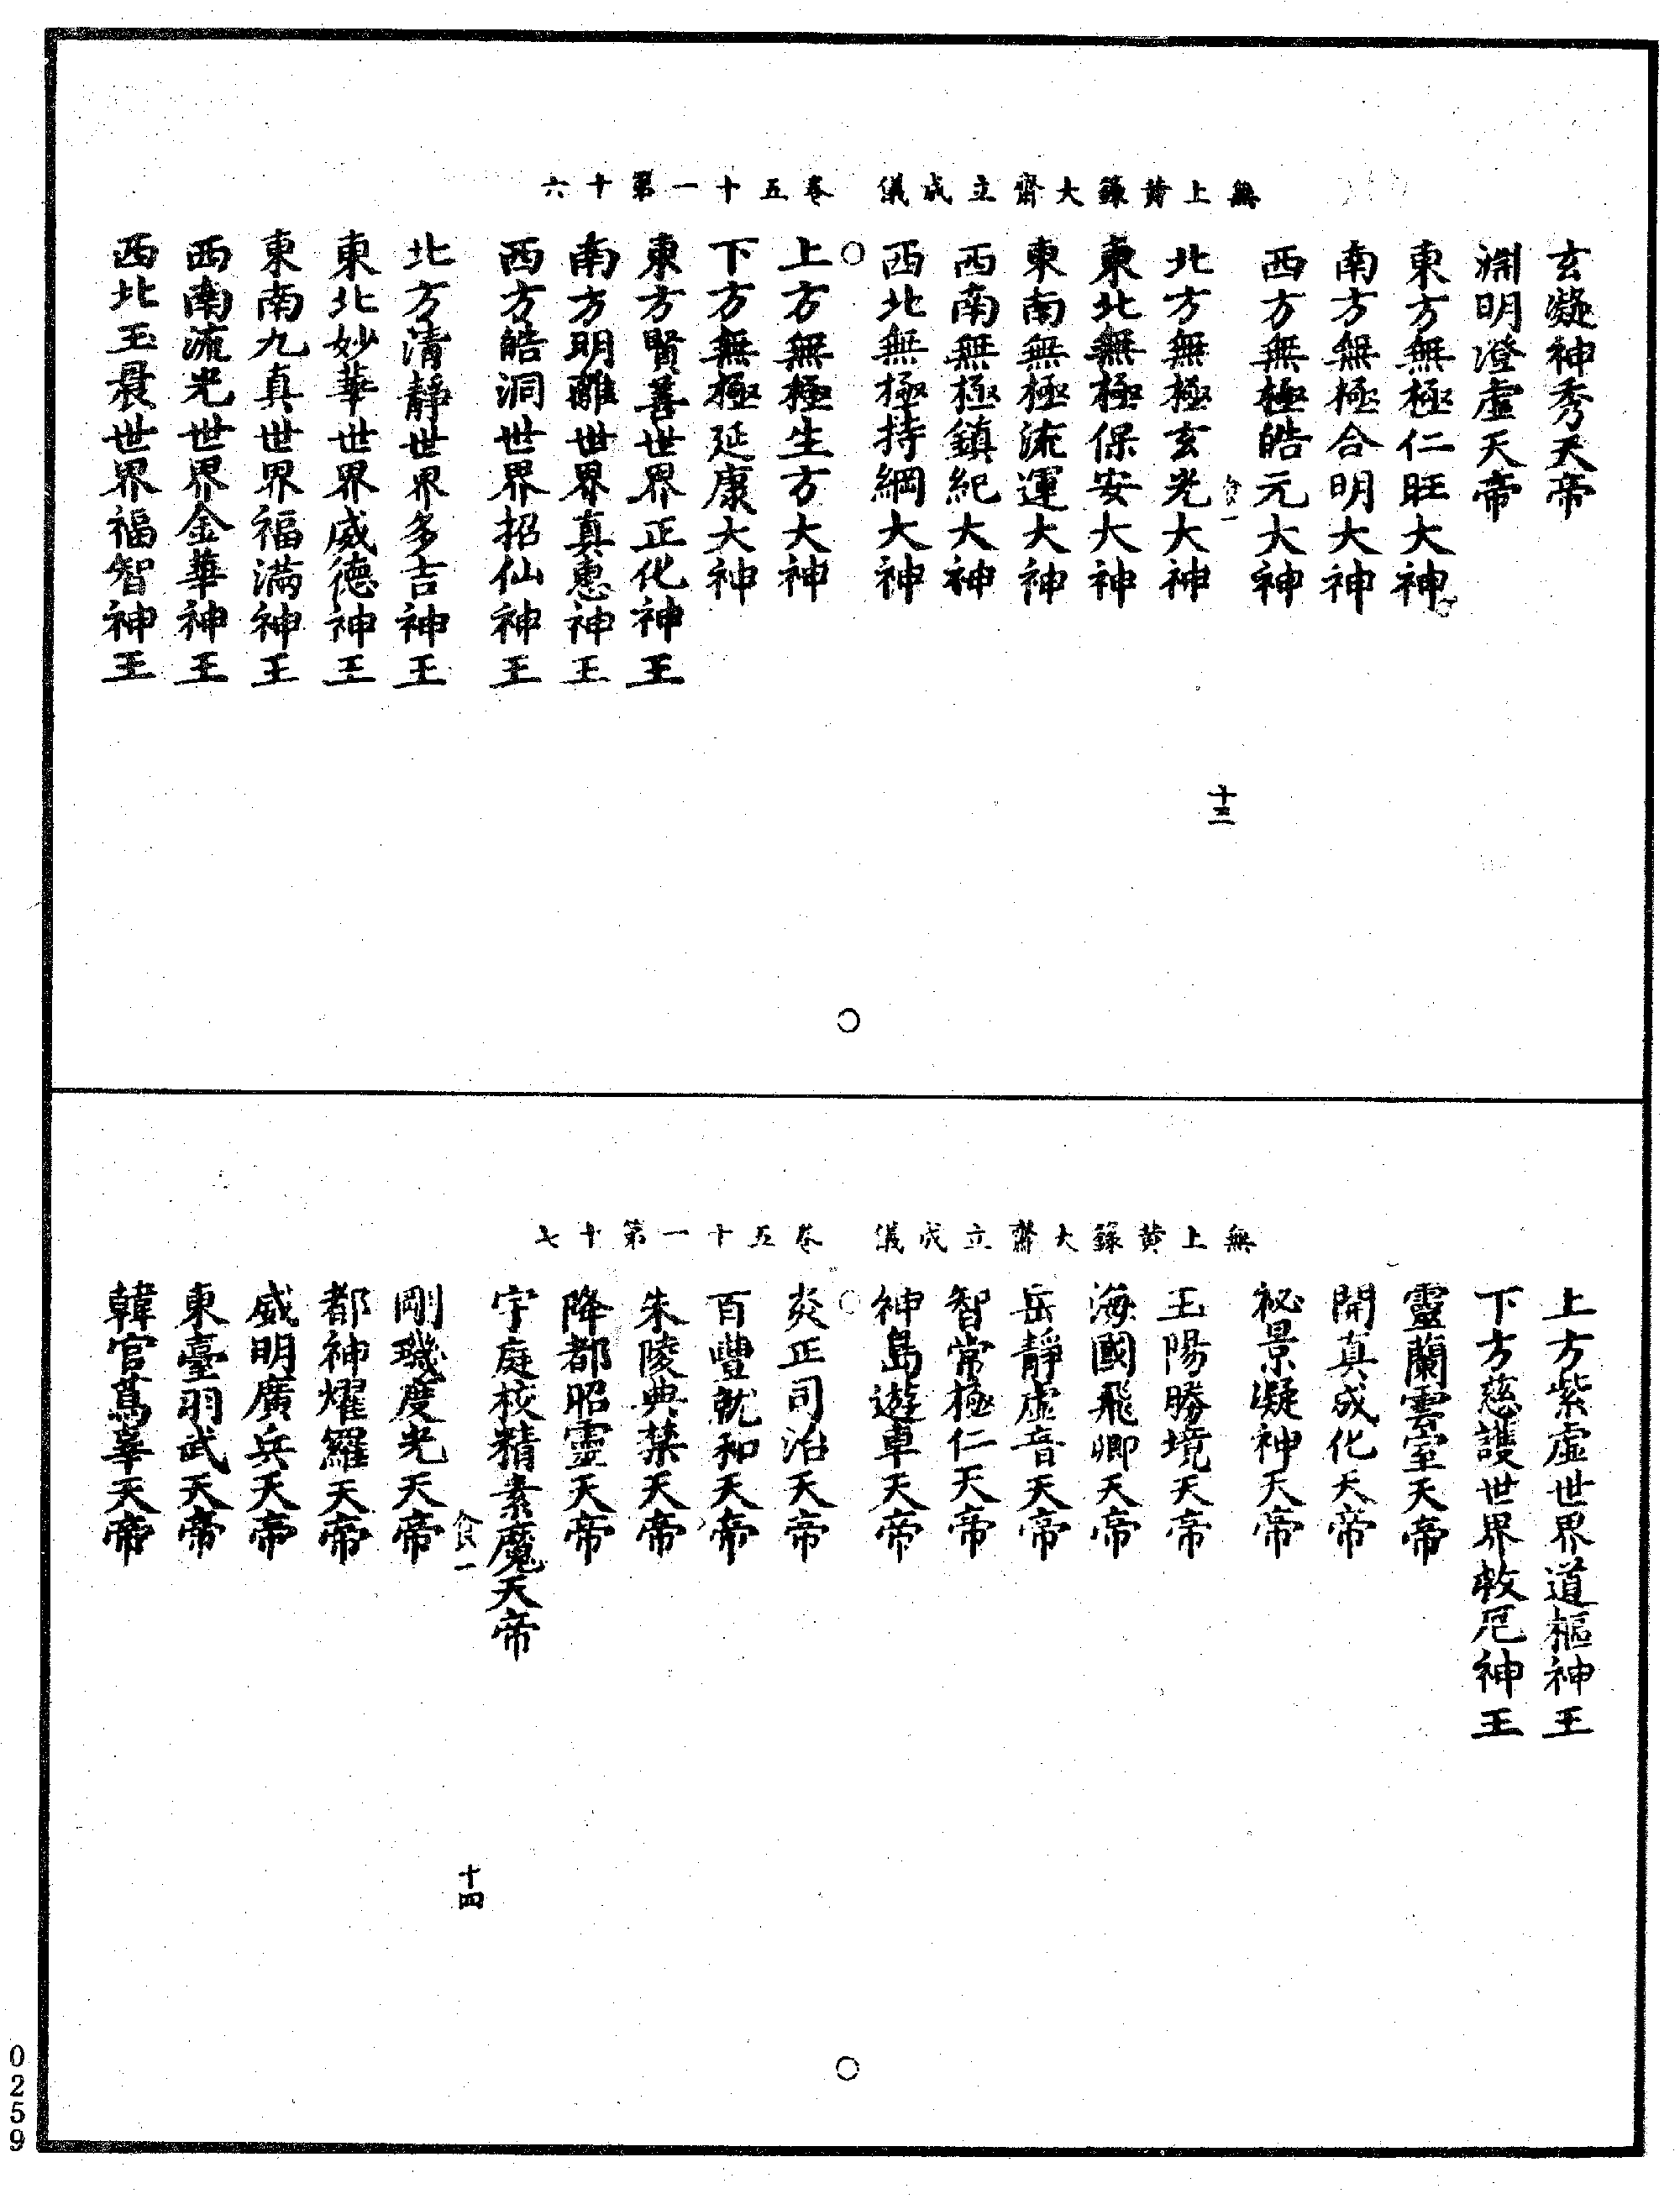 無上黃籙大齋立成儀 卷五十一第十六
玄凝神秀天帝
淵明澄虛天帝
東方無極仁旺大神
南方無極合明大神
西方無極皓元大神
食一
十三
北方無極玄光大神
東北無極保安大神
東南無極流運大神
西南無極鎮紀大神
西北無極持綱大神
上方無極生方大神
下方無極延康大神
東方賢善世界正化神王
南方明離世界真惠神王
西方皓洞世界招仙神王
北方清靜世界多吉神王
東北妙華世界威德神王
東南九真世界福滿神王
西南流光世界金華神王
西北玉晨世界福智神王
無上黃籙大齋立成儀 卷五十一第十七
上方紫虛世界道樞神王
下方慈護世界救厄神王
靈蘭雲室天帝
開真成化天帝
祕景凝神天帝
王陽勝境天帝
海國飛卿天帝
岳靜虛音天帝
智常極仁天帝
神島遊卓天帝
炎正司治天帝
百豐就和天帝
朱陵典禁天帝
降都昭靈天帝
宇庭校精素魔天帝
食一
十四
剛璣度光天帝
都神燿羅天帝
威明廣兵天帝
東臺羽武天帝
韓官蔦辜天帝
0259